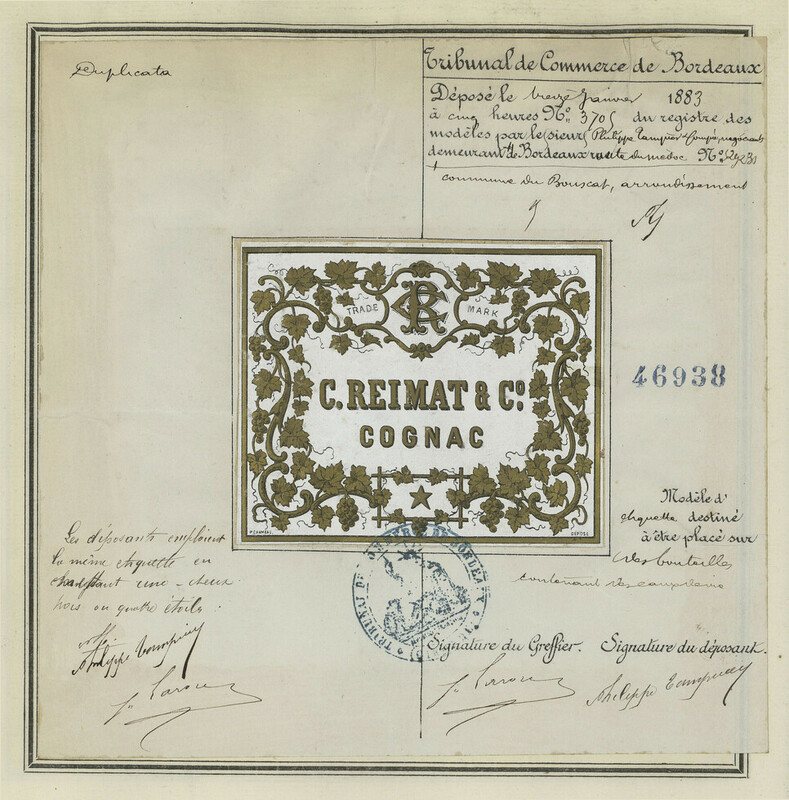 Duplicata
Tribunal de Commerce de Bordeaux
Déposé le treize Janvier 1883
à cinq heures Nº. 3705 du registre des
modèles par le sieur Philippe & Compie négociants
demeurant à Bordeaux route du médoc Nº.
commune du Bouscat, arrondissement
TRADE CR MARK
C. REIMAT & Cº
COGNAC
DÉPOSÉ
46938
Modèle d'
étiquette destiné
à être placé sur
des bouteilles
contenant des
Les déposants emploient
la même étiquette en
une - deux
trois ou quatre étoiles
TRIBUNAL DE COMMERCE DE BORDEAUX
Signature du Greffier. Signature du déposant.
Philippe
Philippe